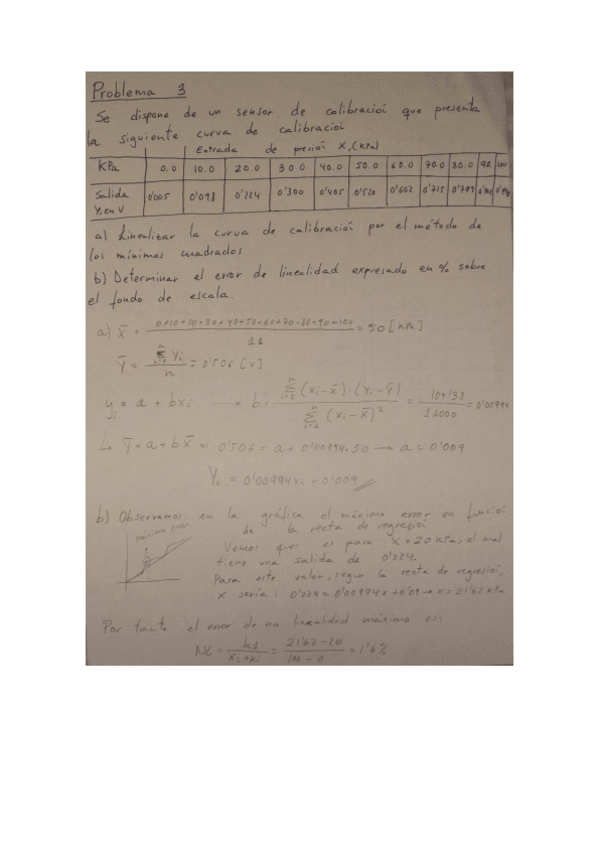 Problema 3
Se dispone de un sensor de calibració que presenta
la siguiente curva de calibració
Entrada de presió X, (kPa)
KPa 0.0 10.0 20.0 30.0 40.0 50.0 60.0 70.0 80.0 90.
Salida Y, en V 0'005 0'098 0'224 0'300 0'405 0'520 0'602 0'715 0'799
a) Linealizar la curva de calibració por el método de
los mínimos cuadrados
b) Determinar el error de linealidad expresado en % sobre
el fondo de escala.
a) X̄ = (0+10+20+30+40+50+60+70+80+90+100)/11 = 50 [kPa]
Ȳ = Σ Yi / n = 0'506 [V]
yi = a + bxi → b = Σ (xi - x̄)·(Yi - Ȳ) / Σ (xi - x̄)² = 109'38 / 11000 = 0'00994
Ȳ = a + b X̄ 0'506 = a + 0'00994·50 → a = 0'009
Yi = 0'00994xi + 0'009
b) Observamos en la gráfica el máximo error en funció
de la recta de regresió
máximo error
Vemos que es para X = 20 kPa, el cual
tiene una salida de 0'224.
Para este valor, segun la recta de regresió,
X sería: 0'224 = 0'00994x + 0'09 → x = 21'62 kPa
Por tanto el error de no linealidad máximo es:
NL = h1 / = 21'62 - 20 / 100 - 0 = 1'6%